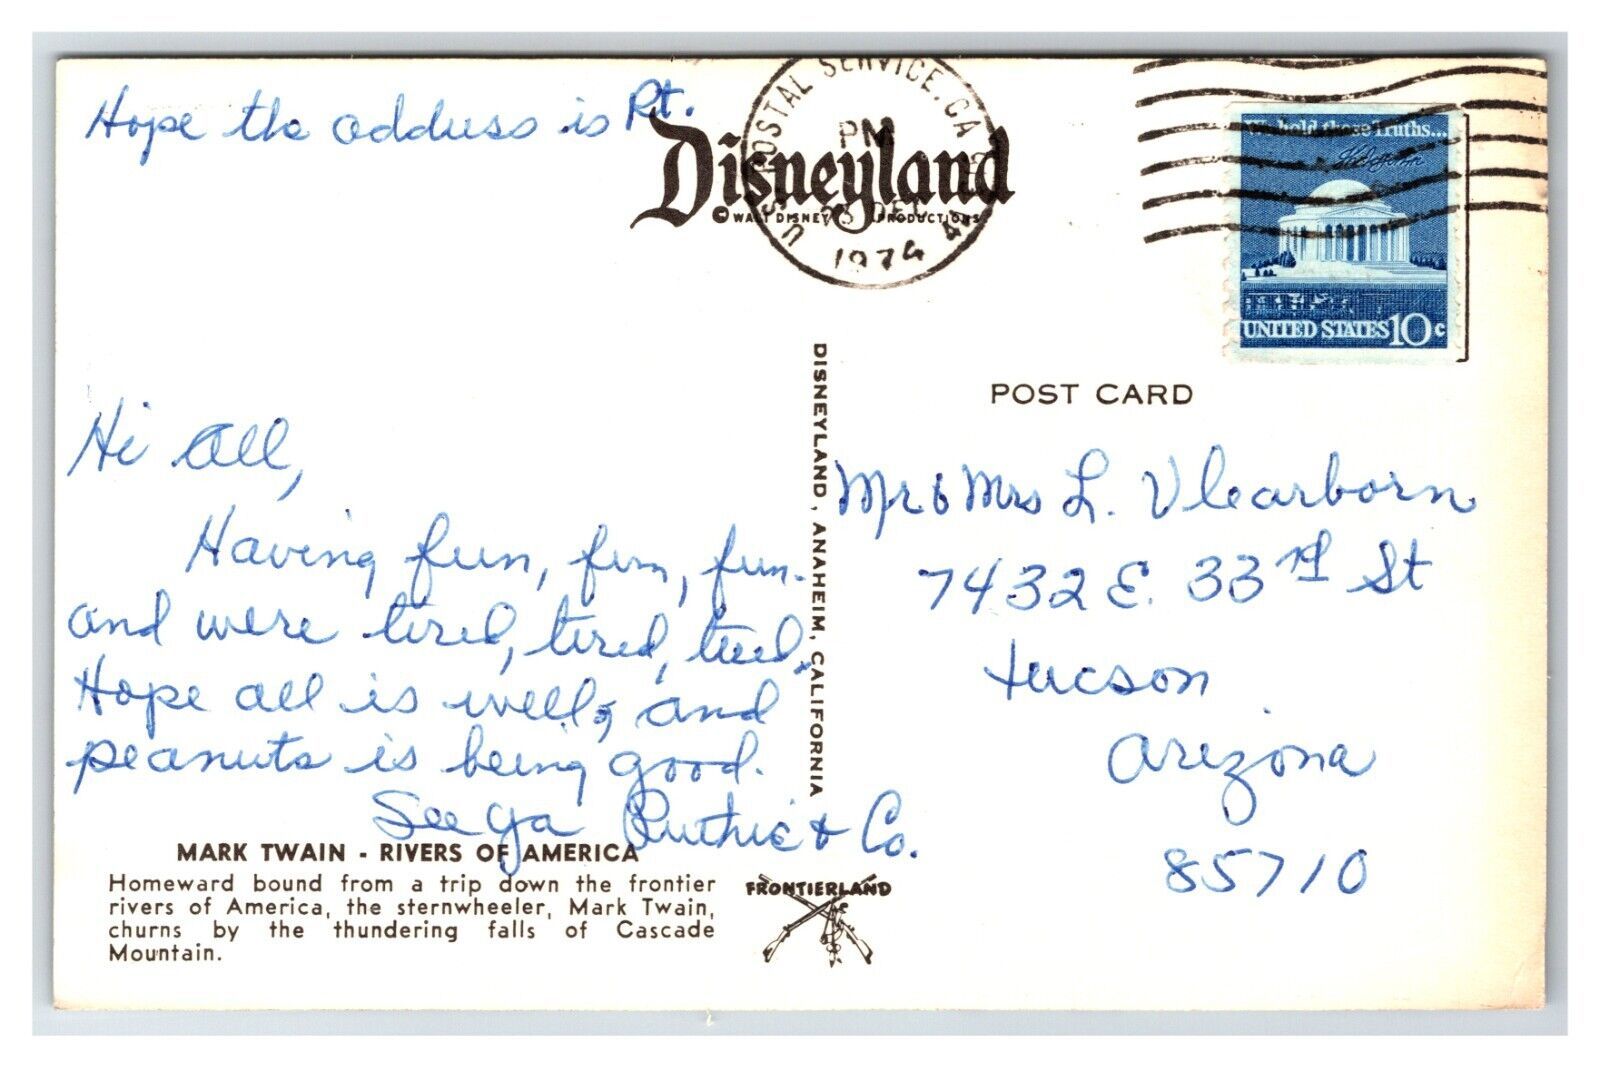 Hope the address is Rt.
Disneyland
© WALT DISNEY PRODUCTIONS
U.S. POSTAL SERVICE. CA
PM
23 DEC
1974
We hold these Truths...
UNITED STATES 10c
POST CARD
DISNEYLAND, ANAHEIM, CALIFORNIA
Hi All,
Having fun, fun, fun.
and were tired, tired, tired.
Hope all is well, and
peanuts is being good.
See ya Ruthie & Co.
Mr & Mrs L. Vlearborn
7432 E. 33rd St
Tucson
Arizona
85710
MARK TWAIN - RIVERS OF AMERICA
Homeward bound from a trip down the frontier
rivers of America, the sternwheeler, Mark Twain,
churns by the thundering falls of Cascade
Mountain.
FRONTIERLAND